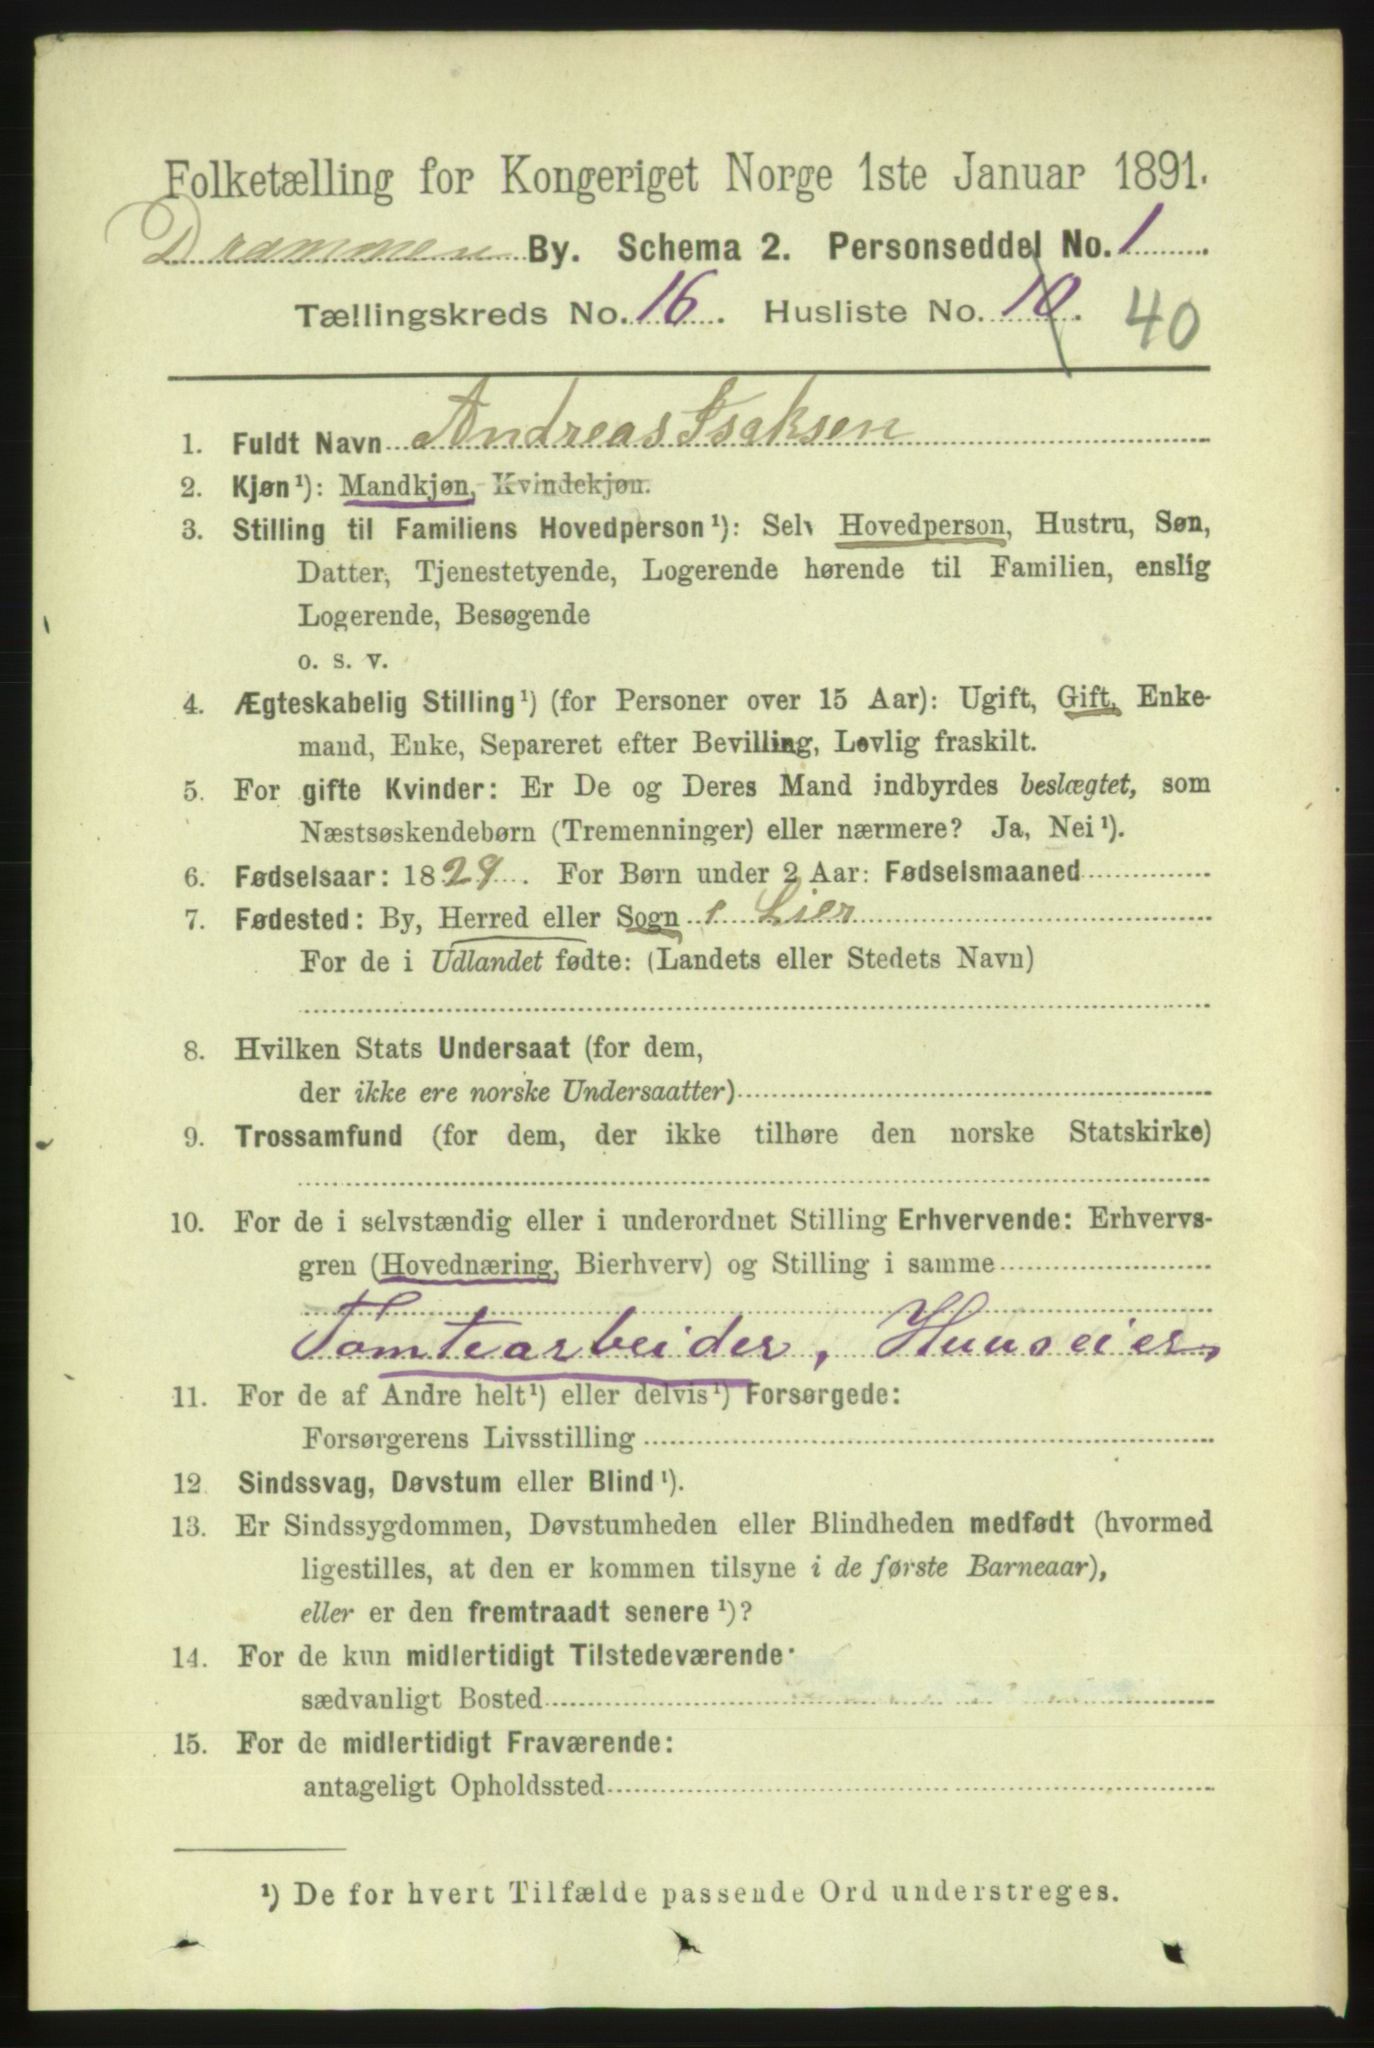 Folketælling for Kongeriget Norge 1ste Januar 1891.
Drammen By. Schema 2. Personseddel No. 1
Tællingskreds No. 16. Husliste No. 10. 40
1. Fuldt Navn Andreas Isaksen
2. Kjøn¹): Mandkjøn, Kvindekjøn.
3. Stilling til Familiens Hovedperson¹): Selv Hovedperson, Hustru, Søn,
Datter, Tjenestetyende, Logerende hørende til Familien, enslig
Logerende, Besøgende
o. s. v.
4. Ægteskabelig Stilling¹) (for Personer over 15 Aar): Ugift, Gift, Enke-
mand, Enke, Separeret efter Bevilling, Lovlig fraskilt.
5. For gifte Kvinder: Er De og Deres Mand indbyrdes beslægtet, som
Næstsøskendebørn (Tremenninger) eller nærmere? Ja, Nei¹).
6. Fødselsaar: 1829. For Børn under 2 Aar: Fødselsmaaned
7. Fødested: By, Herred eller Sogn Lier
For de i Udlandet fødte: (Landets eller Stedets Navn)
8. Hvilken Stats Undersaat (for dem,
der ikke ere norske Undersaatter)
9. Trossamfund (for dem, der ikke tilhøre den norske Statskirke)
10. For de i selvstændig eller i underordnet Stilling Erhvervende: Erhvervs-
gren (Hovednæring, Bierhverv) og Stilling i samme
Tomtearbeider, Huuseier,
11. For de af Andre helt¹) eller delvis¹) Forsørgede:
Forsørgerens Livsstilling
12. Sindssvag, Døvstum eller Blind¹).
13. Er Sindssygdommen, Døvstumheden eller Blindheden medfødt (hvormed
ligestilles, at den er kommen tilsyne i de første Barneaar),
eller er den fremtraadt senere¹)?
14. For de kun midlertidigt Tilstedeværende:
sædvanligt Bosted
15. For de midlertidigt Fraværende:
antageligt Opholdssted
¹) De for hvert Tilfælde passende Ord understreges.